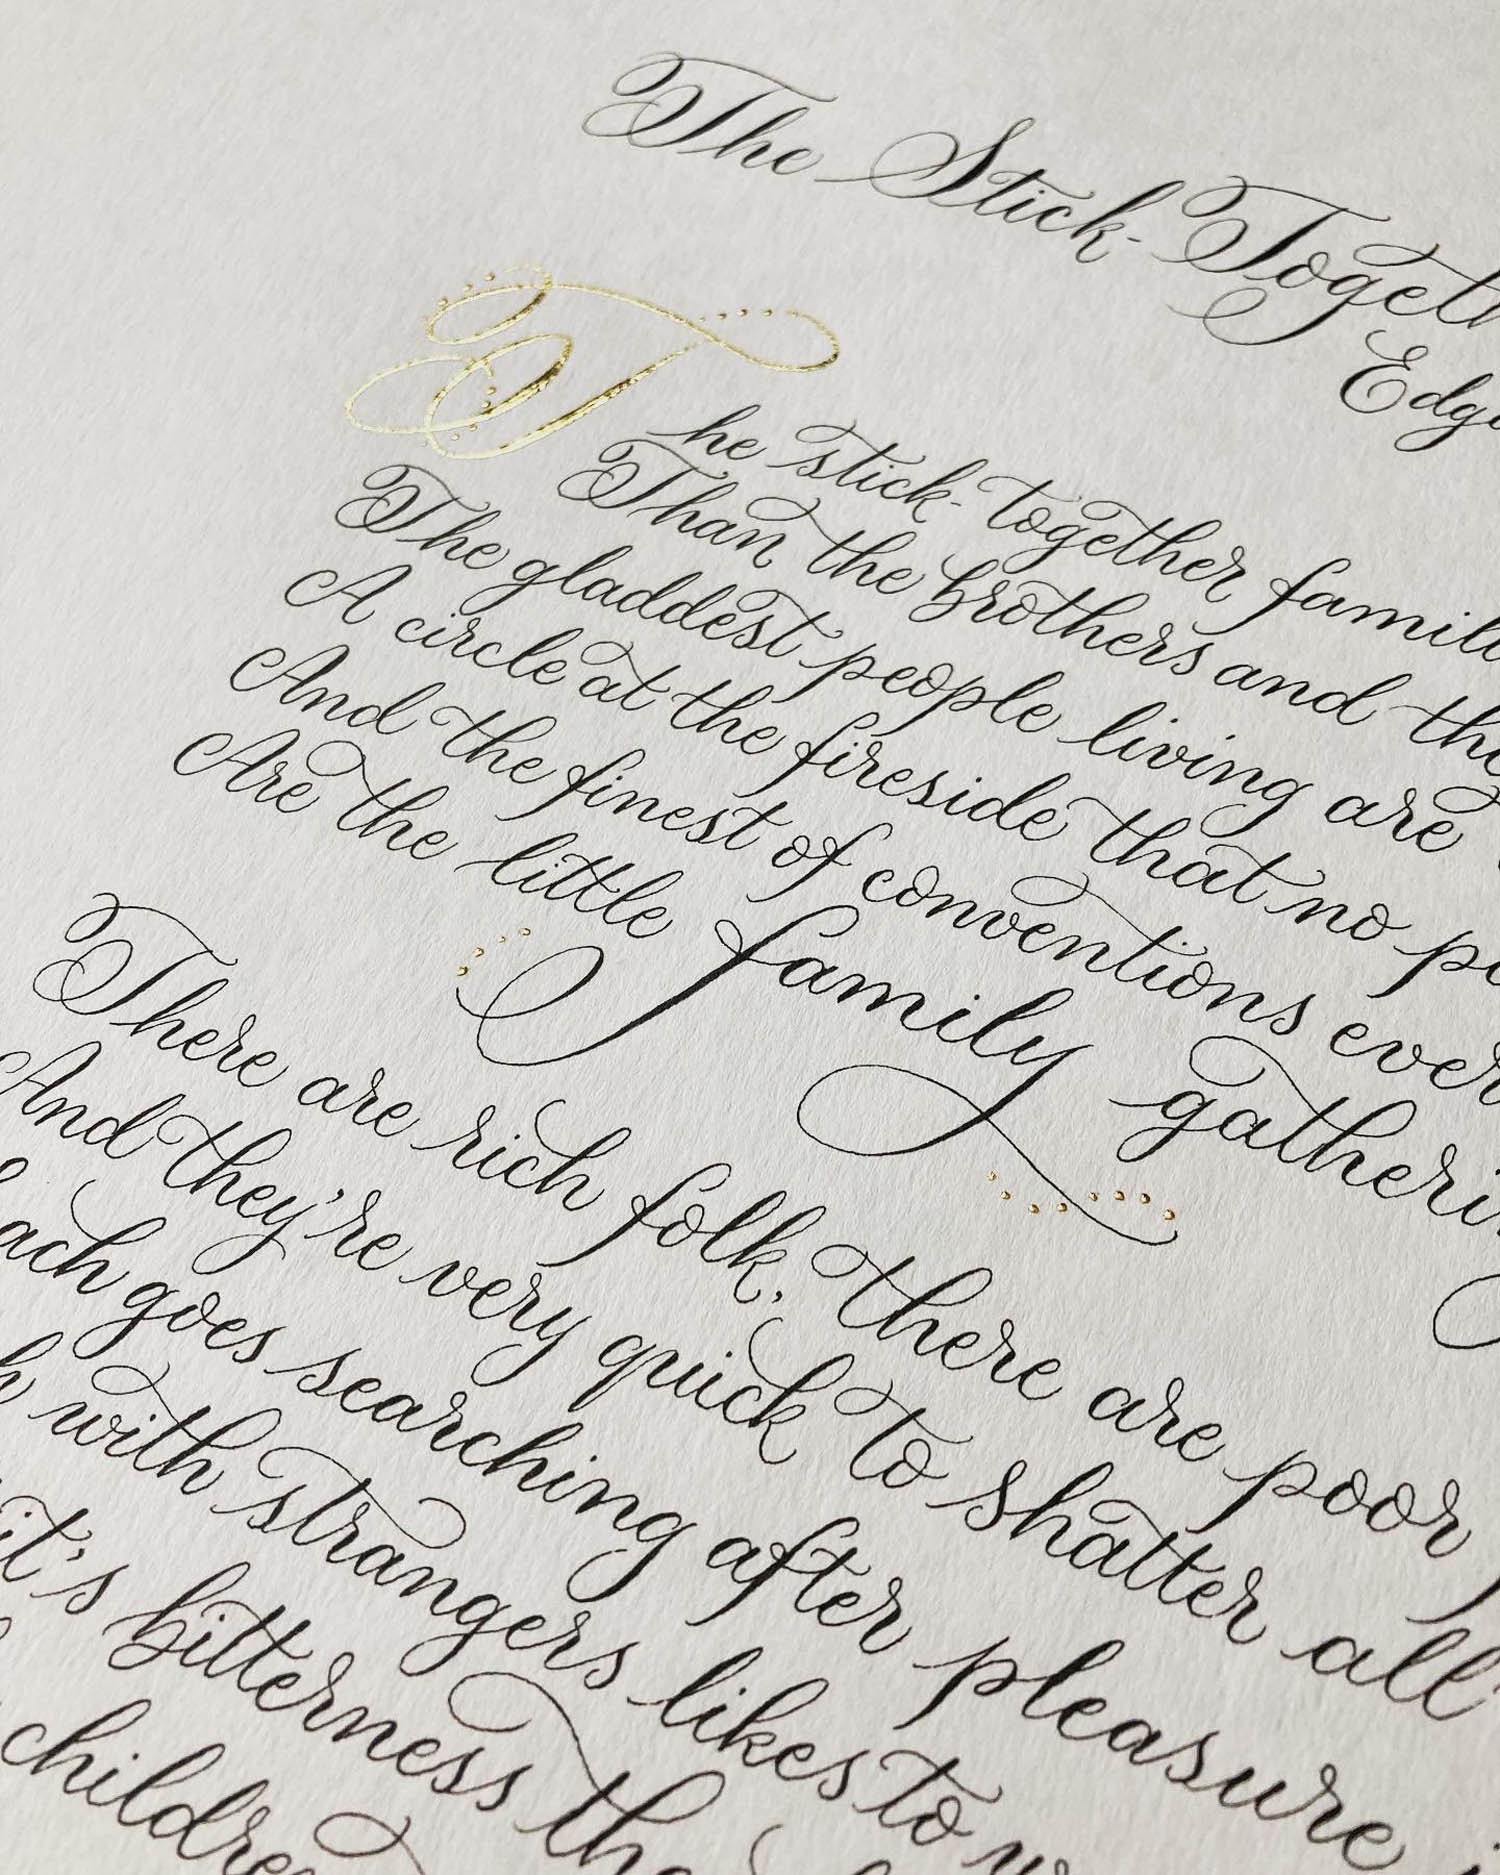 The Stick-Togeth
Edg
The stick-together famili
Than the brothers and the
The gladdest people living are
A circle at the fireside that no po
And the finest of conventions ever
Are the little family gatherin
There are rich folk, there are poor
And they're very quick to shatter all
ach goes searching after pleasure i
h with strangers likes to
it's bitterness the
childre